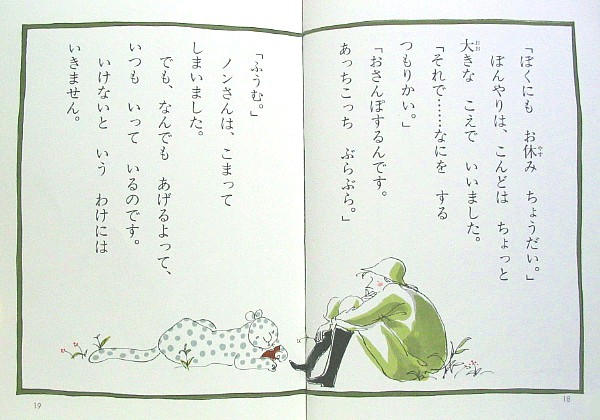 「ぼくにも　お休み　ちょうだい。」
ぼんやりは、こんどは　ちょっと
大きな　こえで　いいました。
「それで……なにを　する
つもりかい。」
「おさんぽするんです。
あっちこっち　ぶらぶら。」
18
「ふうむ。」
ノンさんは、こまって
しまいました。
でも、なんでも　あげるよって、
いつも　いって　いるのです。
いけないと　いう　わけには
いきません。
19